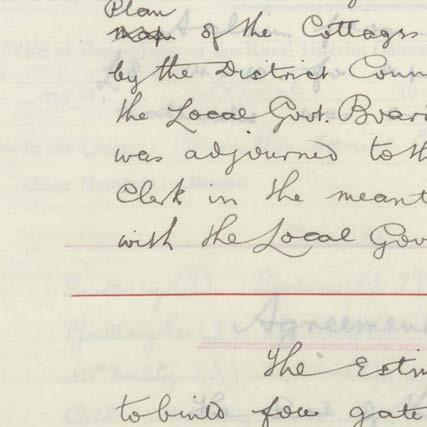 Plan
map of the Cottages
by the District Coun
the Local Govt. Boar
was adjourned to th
Clerk in the meant
with the Local Gov
Agreemen
The Estim
to build four gate